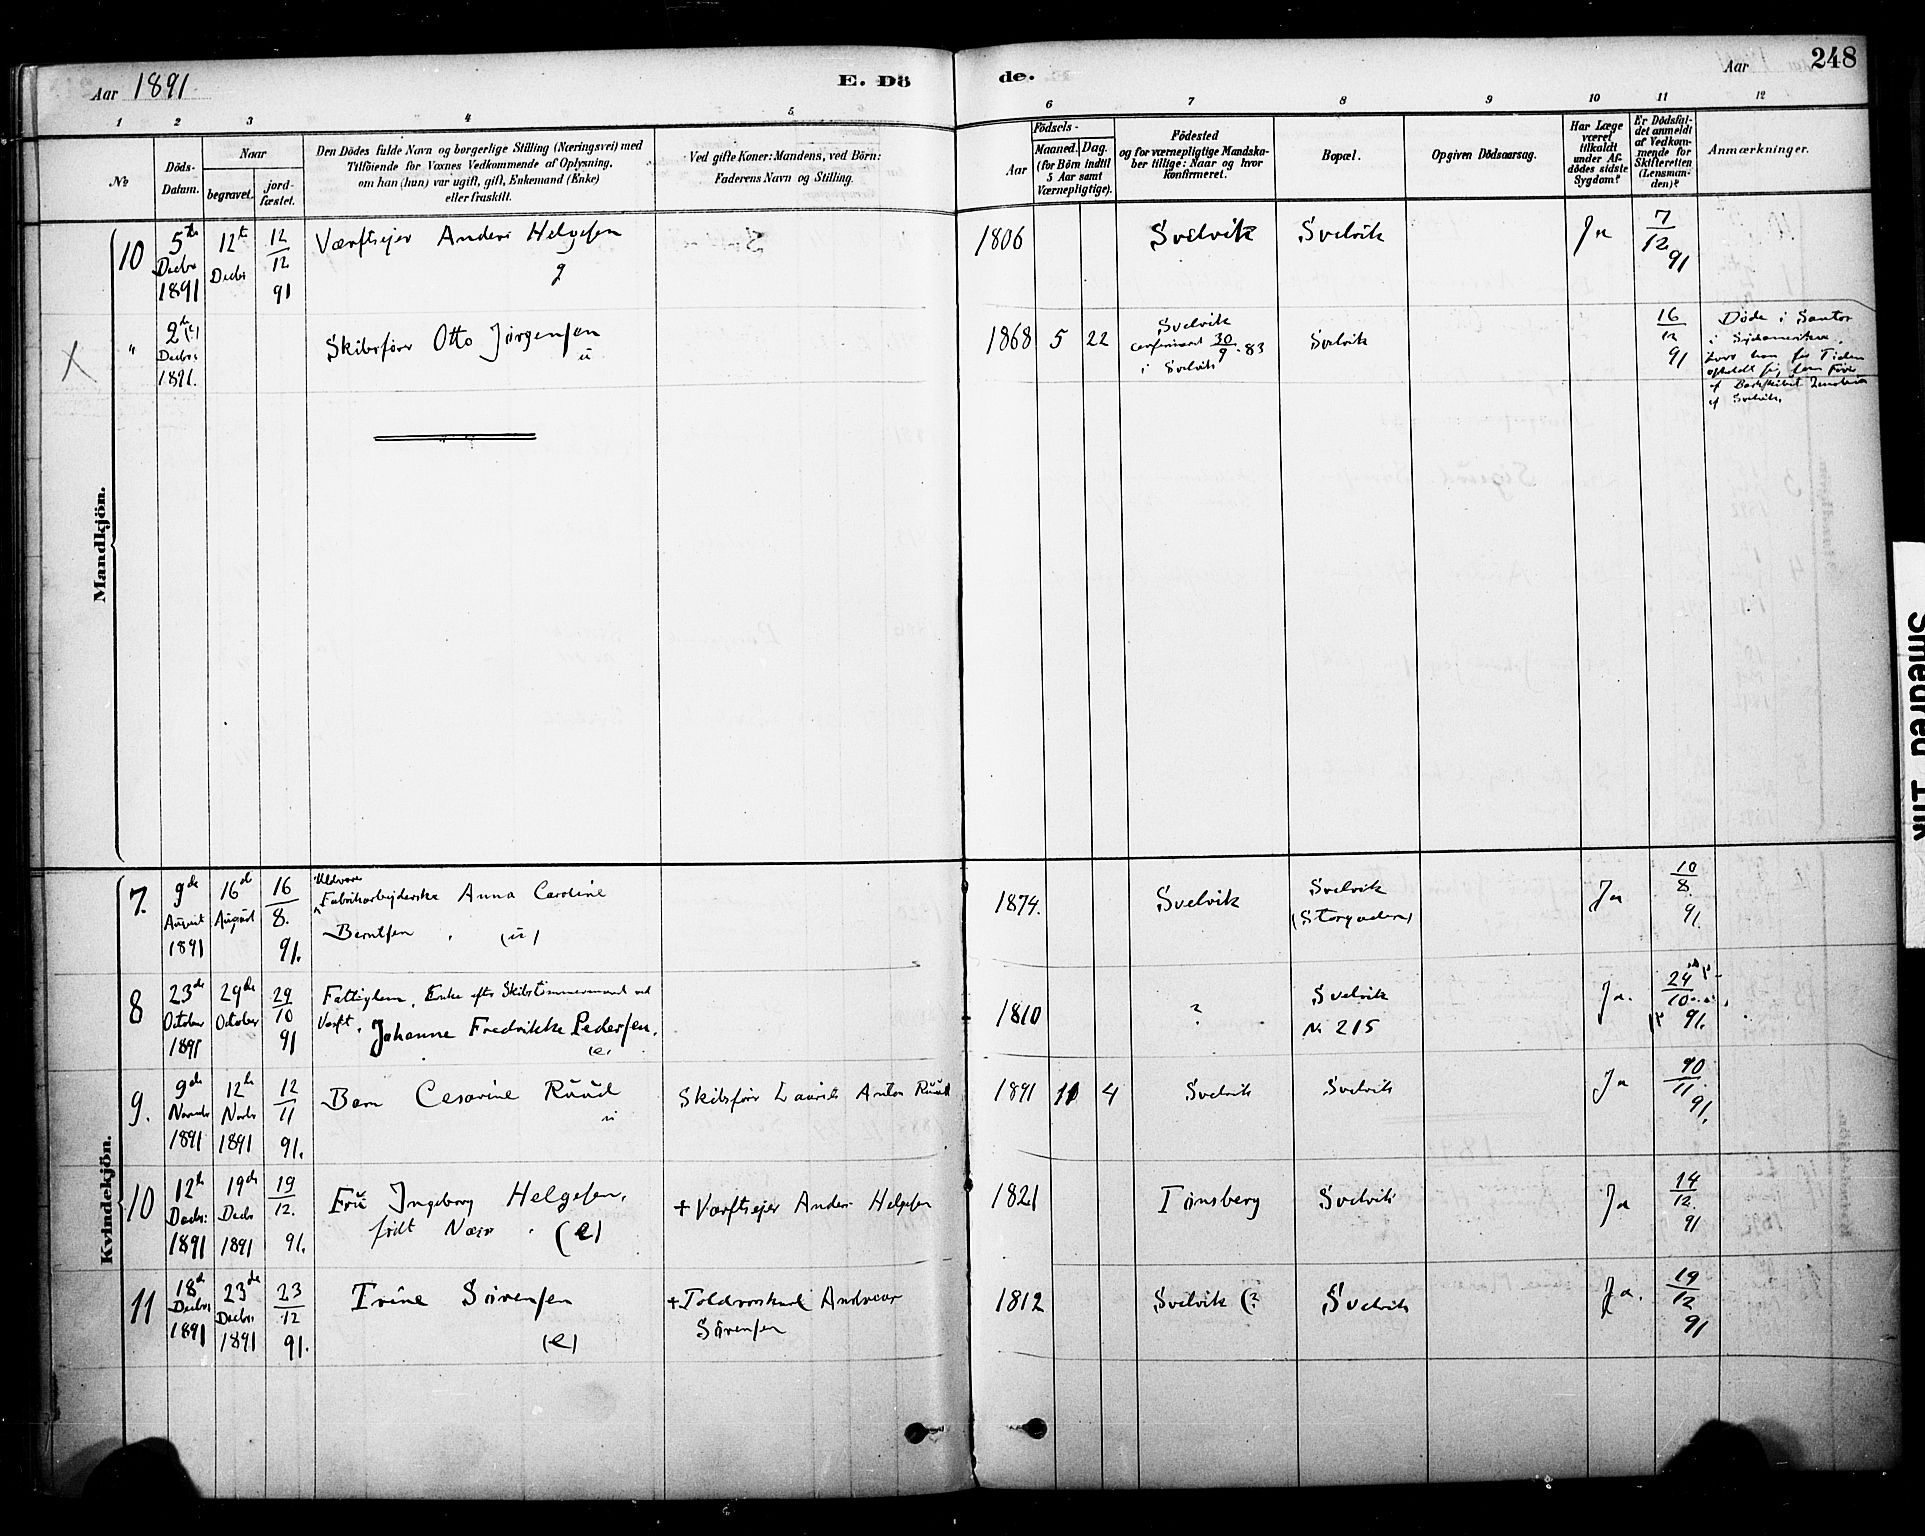 Aar 1891
E. Dö
de.
Aar
248
1 2 3 4 5 6 7 8 9 10 11 12
No
Döds-Datum.
Naar
begravet.
jord-fæstet.
Den Dödes fulde Navn og borgerlige Stilling (Næringsvei) med
Tilföiende for Voxnes Vedkommende af Oplysning.
om han (hun) var ugift, gift, Enkemand (Enke)
eller fraskilt.
Ved gifte Koner: Mandens, ved Börn:
Faderens Navn og Stilling.
Födsels-
Aar
Maaned. Dag.
(for Börn indtil
5 Aar samt
Værnepligtige).
Födested
og for værnepligtige Mandska-
ber tillige: Naar og hvor
konfirmeret.
Bopæl.
Opgiven Dödsaarsag.
Har Læge
været
tilkaldt
under Af-
dödes sidste
Sygdom?
Er Dödsfal-
det anmeldt
af Vedkom-
mende for
Skifteretten
(Lensman-
den)?
Anmærkninger.
Mandkjön.
10 5te Decbr 1891 12te Decbr 12/12 91 Værftsejer Anders Helgesen g 1806 Svelvik Svelvik Ja 7/12 91
" 2de (?) Decbr 1891. Skibsfører Otto Jørgensen ü 1868 5 22 Svelvik
confirmeret 30/9 -83
i Svelvik
Svelvik 16/12 91
Døde i Santos
i Sydamerika,
hvor han for Tiden
opholdt sig som Fører
af Barkskibet
af Svelvik.
Kvindekjön.
7. 9de August 1891 16de August 16/8. 91. Uldvare
Fabrikarbejderske Anna Caroline
Berntsen (ü) 1874. Svelvik Svelvik
(Storgaden) Ja 10/8. 91.
8 23de October 1891 29de October 29/10 91 Fattiglem, Enke efter Skibstømmermand ved
Værft. Johanne Fredrikke Pedersen.
(e) 1810 ? Svelvik
No 215 Ja. 24/10 91.
9. 9de Novbr 1891 12te Novbr 1891 12/11 91. Barn Cesarine Ruud
ü Skibsfører Laurits Anton Ruud 1891 11 4 Svelvik Svelvik Ja 90/11 91.
10 12te Decbr: 1891 19de Decbr 1891 19/12. 91. Fru Ingeborg Helgesen,
født (e) + Værftsejer Anders Helgesen 1821 Tønsberg Svelvik Ja 14/12. 91
11 18de Decbr 1891 23de Decbr 1891 23/12 91. Trine Sørensen
(e) + Toldvorskarl Andreas
Sørensen 1812 Svelvik (? Svelvik Ja. 19/12 91
Smedred Ink